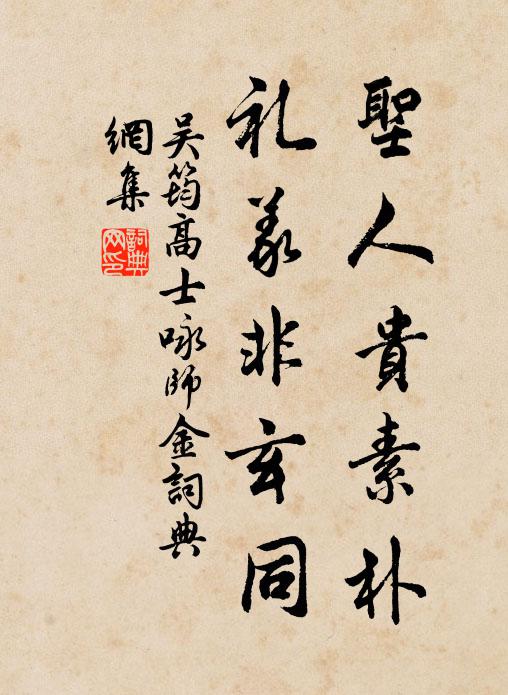 聖人貴素朴
礼義非玄同
吴筠高士咏師金詞典
網集
詞典
网印